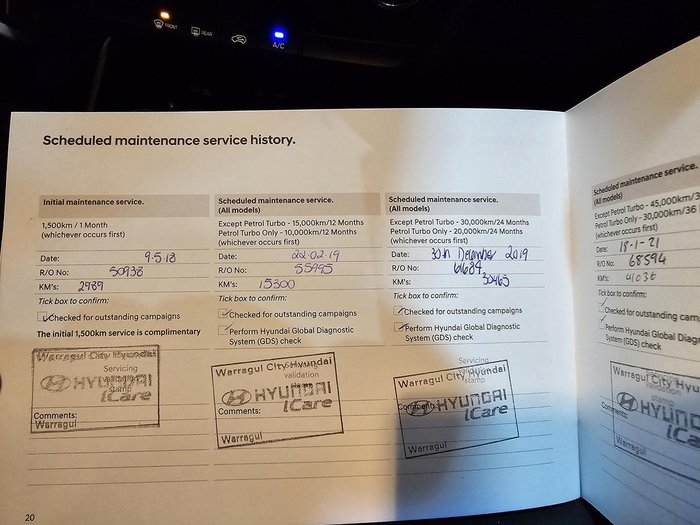 FRONT
REAR
A/C
Scheduled maintenance service history.
Initial maintenance service.
1,500km / 1 Month
(whichever occurs first)
Date: 9.5.18
R/O No: 50938
KM's: 2989
Tick box to confirm:
Checked for outstanding campaigns
The initial 1,500km service is complimentary
Warragul City Hyundai
Servicing
validation
stamp
HYUNDAI
iCare
Comments:
Warragul
Scheduled maintenance service.
(All models)
Except Petrol Turbo - 15,000km/12 Months
Petrol Turbo Only - 10,000km/12 Months
(whichever occurs first)
Date: 22.02.19
R/O No: 55995
KM's: 15300
Tick box to confirm:
Checked for outstanding campaigns
Perform Hyundai Global Diagnostic
System (GDS) check
Warragul City Hyundai
Servicing
validation
HYUNDAI
iCare
Comments:
Warragul
Scheduled maintenance service.
(All models)
Except Petrol Turbo - 30,000km/24 Months
Petrol Turbo Only - 20,000km/24 Months
(whichever occurs first)
Date: 30th December 2019
R/O No:
KM's: 30465
Tick box to confirm:
Checked for outstanding campaigns
Perform Hyundai Global Diagnostic
System (GDS) check
Servicing
validation
stamp
Warragul City Hyundai
HYUNDAI
iCare
Comments:
Warragul
Scheduled maintenance service.
(All models)
Except Petrol Turbo - 45,000km/3
Petrol Turbo Only - 30,000km/36
(whichever occurs first)
Date: 18-1-21
R/O No: 68594
KM's: 41036
Tick box to confirm:
Checked for outstanding
Perform Hyundai Global Diag
System (GDS) check
Warragul City Hyu
HYUNDA
iCa
Comments:
Warragul
20